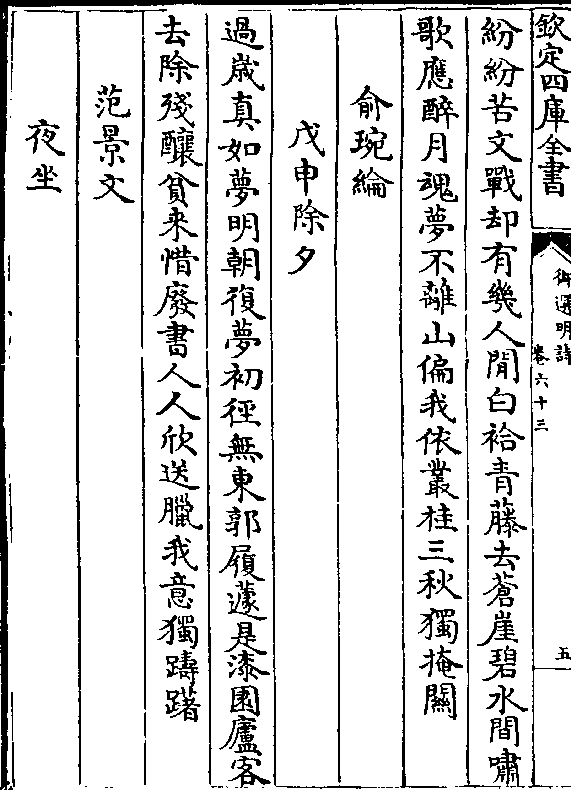 欽定四庫全書
御選明詩
卷六十三
五
紛紛苦文戰却有幾人閒白袷青藤去蒼崖碧水間嘯
歌應醉月魂夢不離山偏我依叢桂三秋獨掩關
俞琬綸
戊申除夕
過歲真如夢明朝復夢初徑無東郭履蘧是漆園廬客
去除殘釀貧来惜廢書人人欣送臘我意獨躊躇
范景文
夜坐